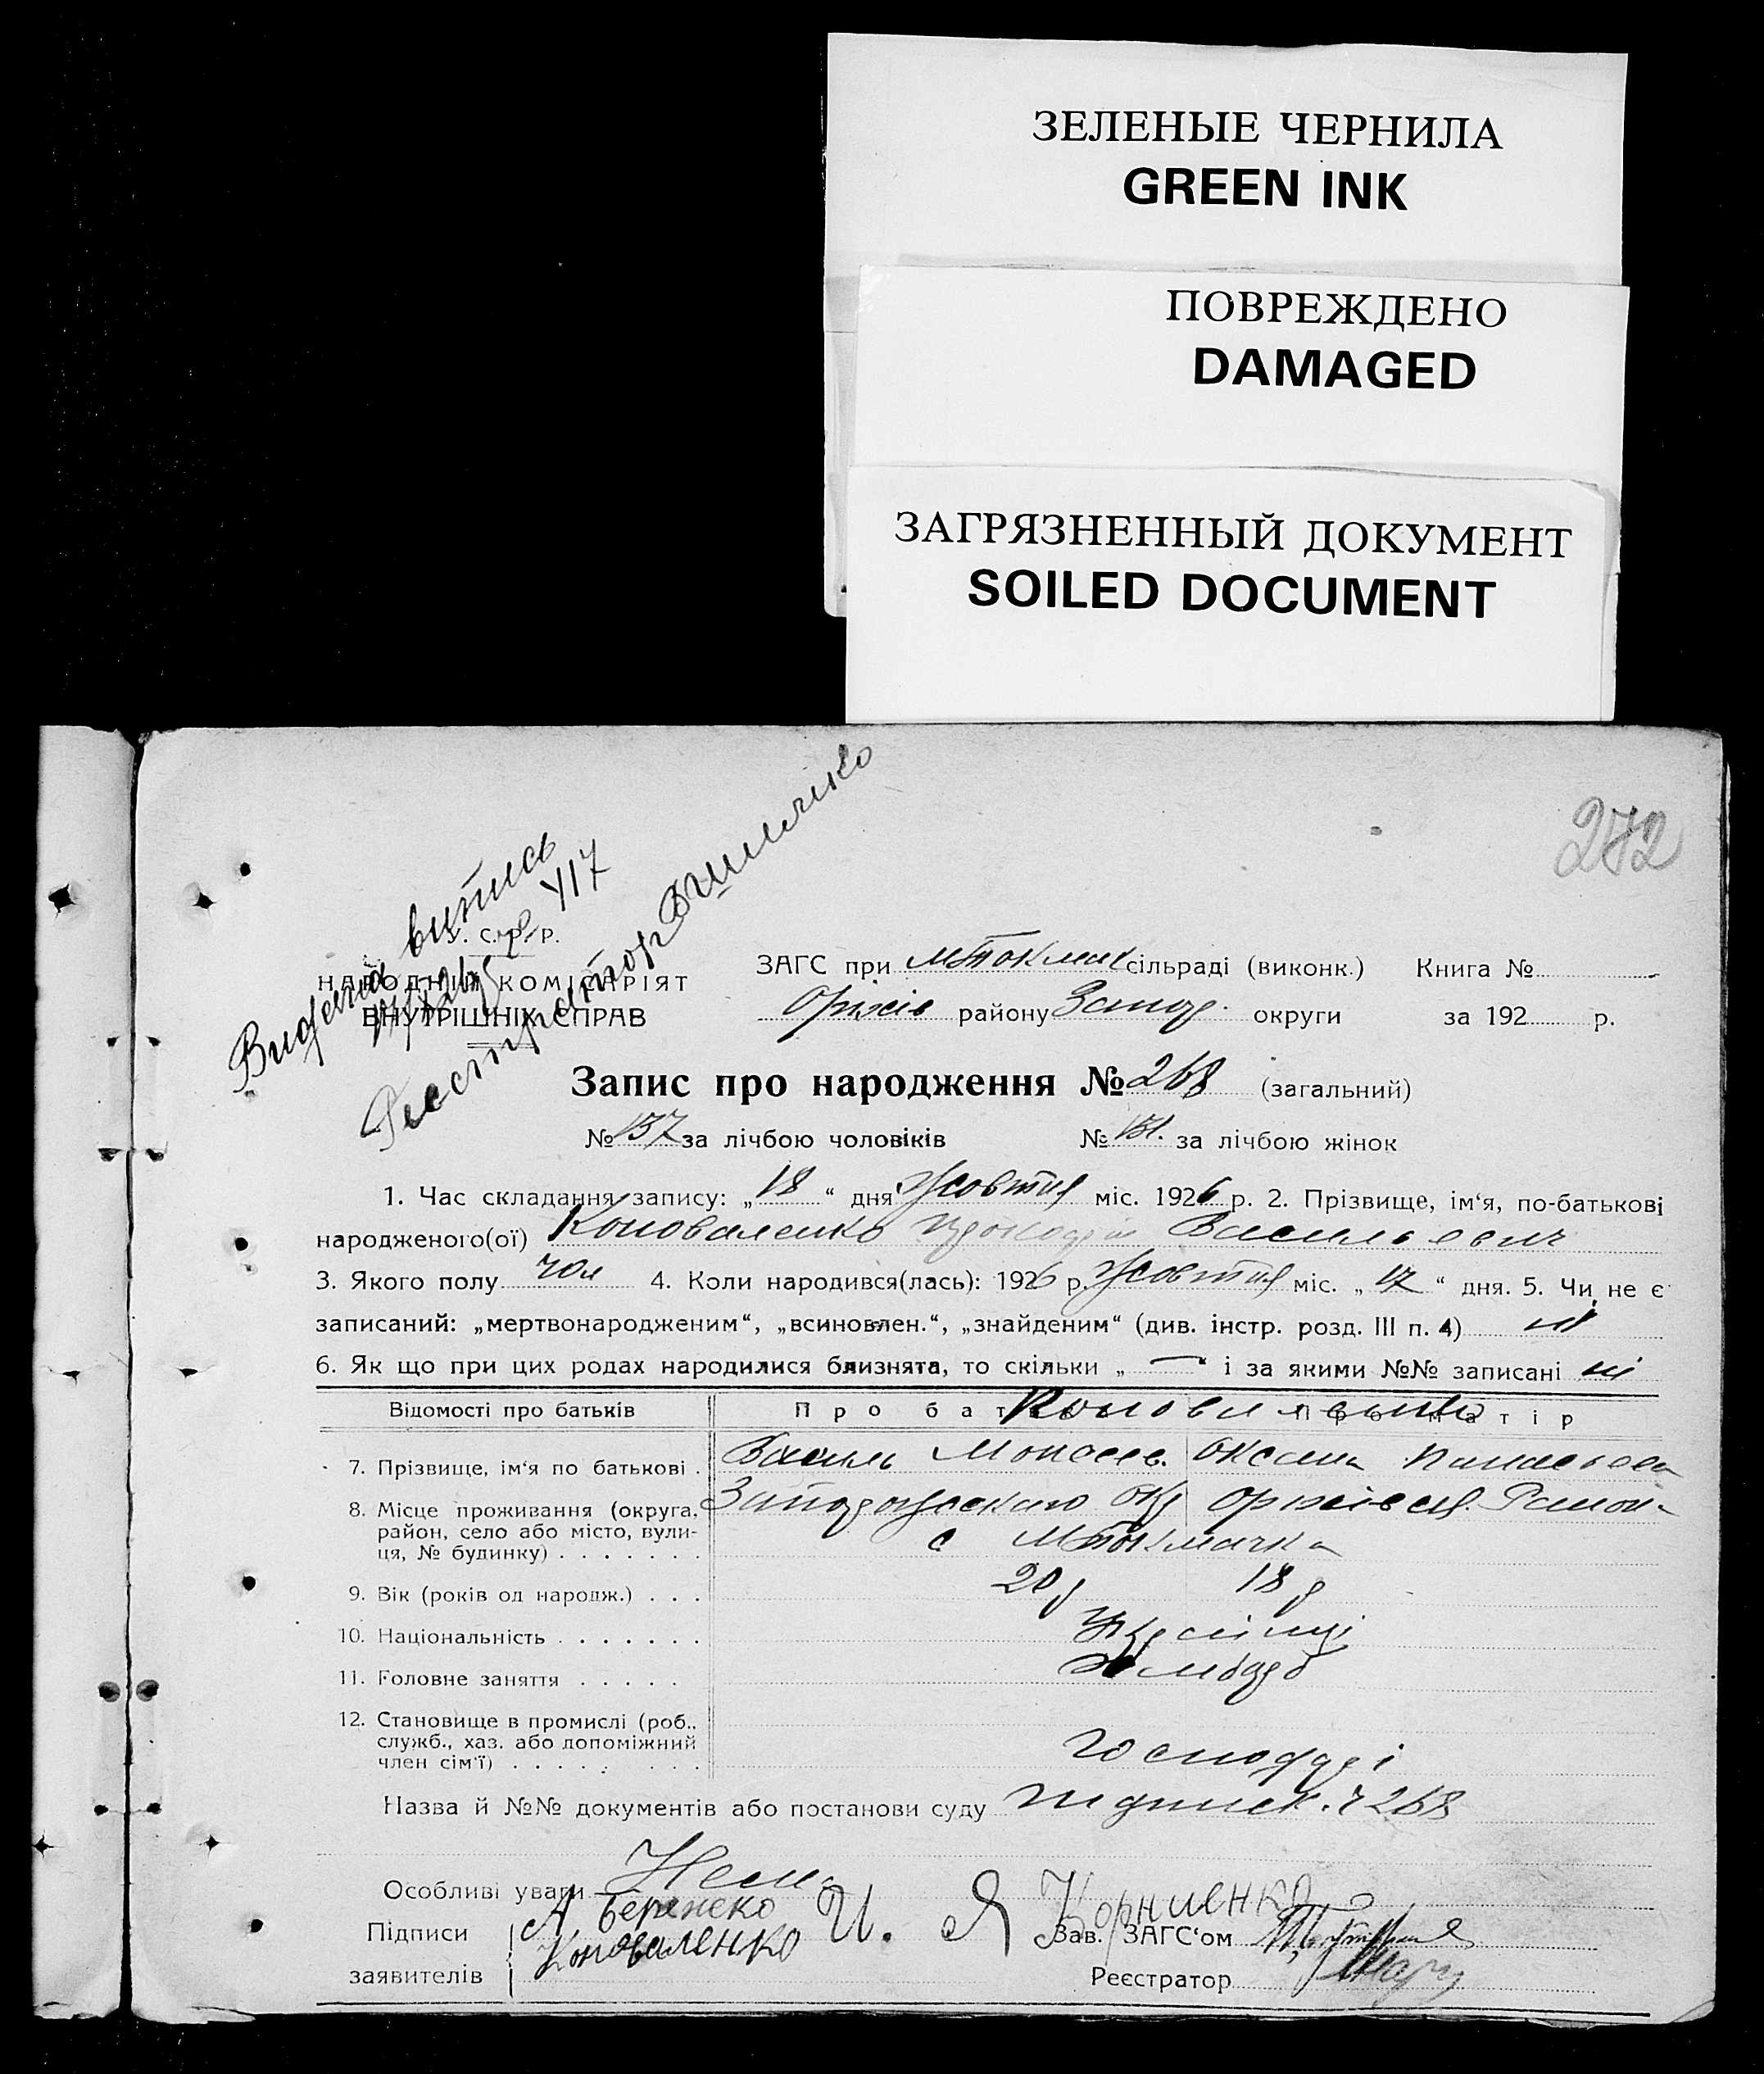 ЗЕЛЕНЫЕ ЧЕРНИЛА
GREEN INK
ПОВРЕЖДЕНО
DAMAGED
ЗАГРЯЗНЕННЫЙ ДОКУМЕНТ
SOILED DOCUMENT
272
Видана витись
417
Реєстратор
У. С. Р. Р.
НАРОДНІЙ КОМІСАРІЯТ
ВНУТРІШНІХ СПРАВ
ЗАГС при МТокмац сільраді (виконк.) Книга №
Оріхів району Запор. округи за 192 р.
Запис про народження № 268 (загальний)
№ 137 за лічбою чоловіків № 131. за лічбою жінок
1. Час складання запису: „18“ дня Жовтня міс. 1926 р. 2. Прізвище, ім‘я, по-батькові
народженого(ої) Коноваленко Васильевич
3. Якого полу чол 4. Коли народився(лась): 1926 р. Жовтня міс. „17“ дня. 5. Чи не є
записаний: „мертвонародженим“, „всиновлен.“, „знайденим“ (див. інстр. розд. III п. 4) ні
6. Як що при цих родах народилися близнята, то скільки „—“ і за якими №№ записані ні
Відомості про батьків Про батька Про матір
Коноваленко
7. Прізвище, ім‘я по батькові . Василь Моисеев. Оксана
8. Місце проживання (округа, Запорожського окр Оріхівськ. Район
район, село або місто, вули-
ця, № будинку) . . . . . . . с МТокмачка
9. Вік (років од народж.) . . . 20 р 18 р
10. Національність . . . . . . . Українці
11. Головне заняття . . . . . хлібороб
12. Становище в промислі (роб.,
служб., хаз. або допоміжний
член сім‘ї) . . . . . . . . господарі
Назва й №№ документів або постанови суду 268
Особливі уваги Нема
Підписи
заявителів
А. Беренеко И. Я Корниенко
Коноваленко
Зав. ЗАГС‘ом
Реєстратор